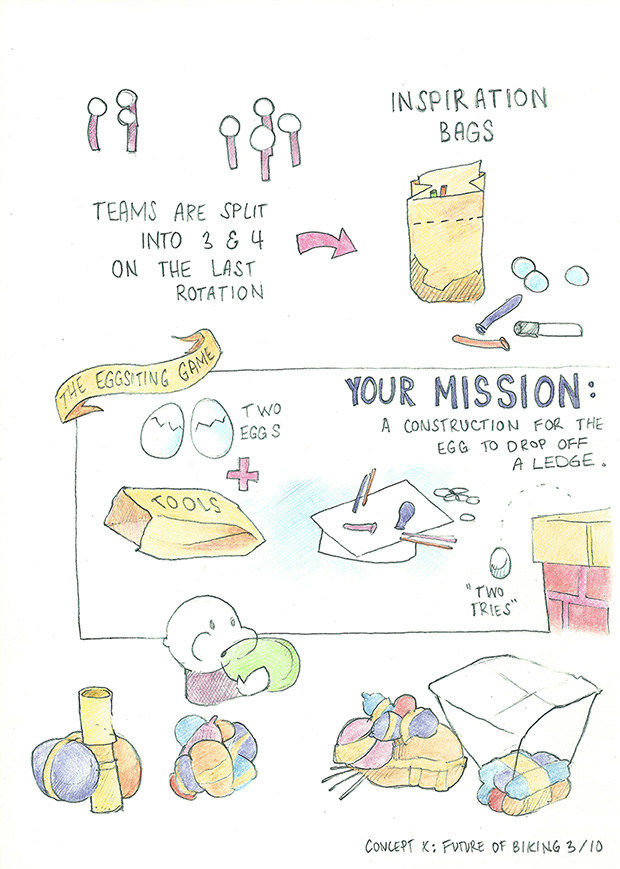 INSPIRATION
BAGS
TEAMS ARE SPLIT
INTO 3 & 4
ON THE LAST
ROTATION
THE EGGSITING GAME
TWO
EGGS
TOOLS
YOUR MISSION:
A CONSTRUCTION FOR THE
EGG TO DROP OFF
A LEDGE.
"TWO
TRIES"
CONCEPT K: FUTURE OF BIKING 3/10